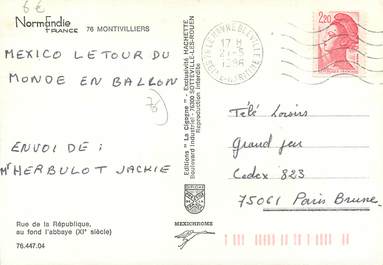 6€
Normandie
FRANCE
76 MONTIVILLIERS
MEXICO LE TOUR DU
MONDE EN BALLON
76
ENVOI DE :
Mr HERBULOT JACKIE
Rue de la République,
au fond l'abbaye (XIe siècle)
76.447.04
Editions " La Cigogne " - Exclusivité HACHETTE
Boulevard Industriel - 76300 SOTTEVILLE-LES-ROUEN
Reproduction Interdite
MEXICHROME
17 H
1986
2,20
Télé Loisirs
Grand jeu
Cedex 823
75061 Paris Brune